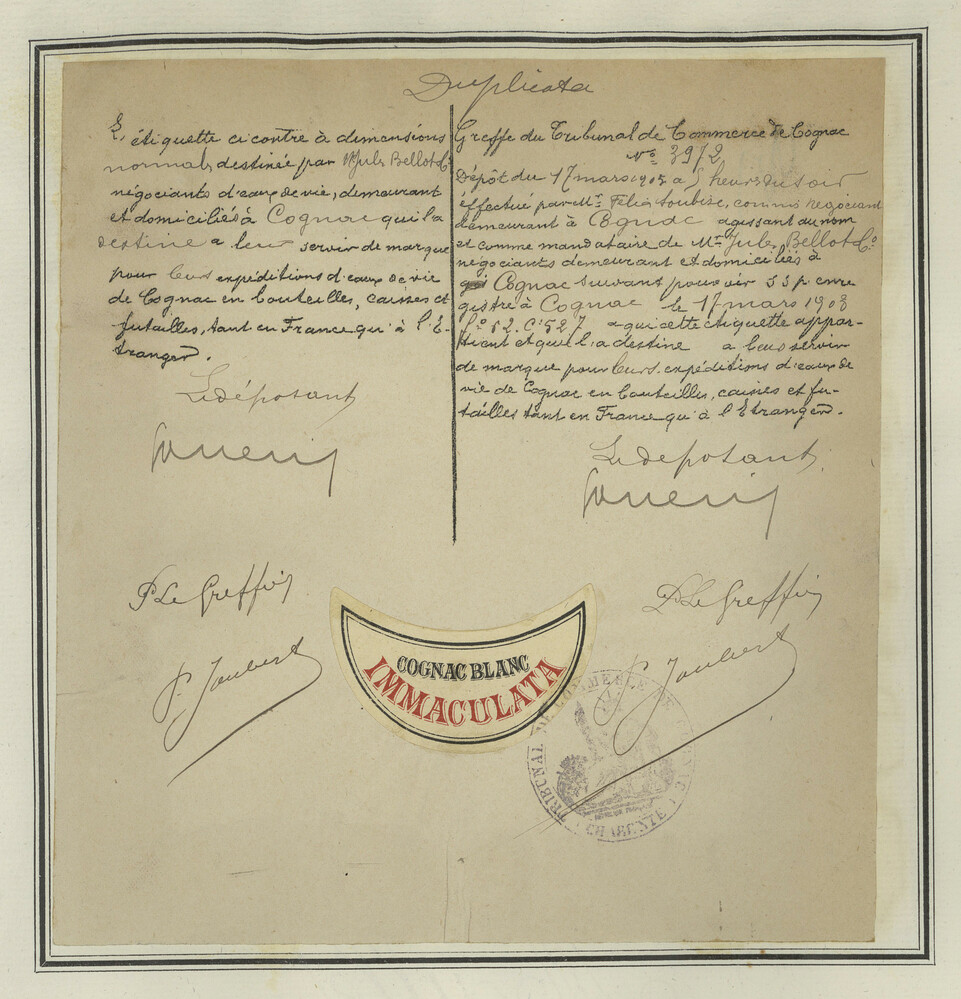 Duplicata
L'étiquette ci contre à dimensions
normales, destinée par Mr Jules Bellot & Co
négociants d'eaux de vie, demeurant
et domiciliés à Cognac qui la
destine a leur servir de marque
pour leurs expéditions d'eaux de vie
de Cognac en bouteilles, caisses et
futailles, tant en France qu'à l'E-
tranger.
Le déposant
P. Le Greffier
P. Joubert
Greffe du Tribunal de Commerce de Cognac
No 3912
Dépôt du 17 mars 1908 à 5 heures du soir
effectué par Mr Félix Soubise, commis négociant
demeurant à Cognac agissant au nom
et comme mandataire de Mr Jules Bellot & Co
négociants demeurant et domiciliés à
Cognac suivant pouvoir SSp enre
gistré à Cognac le 17 mars 1908
fo 52 Co 527 a qui cette étiquette appar-
tient et qui l'a destine a leur servir
de marque pour leurs expéditions d'eaux de
vie de Cognac en bouteilles, caisses et fu-
tailles tant en France qu'à l'Etranger.
Le déposant
P. Le Greffier
P. Joubert
COGNAC BLANC
IMMACULATA
TRIBUNAL DE COMMERCE DE COGNAC
CHARENTE